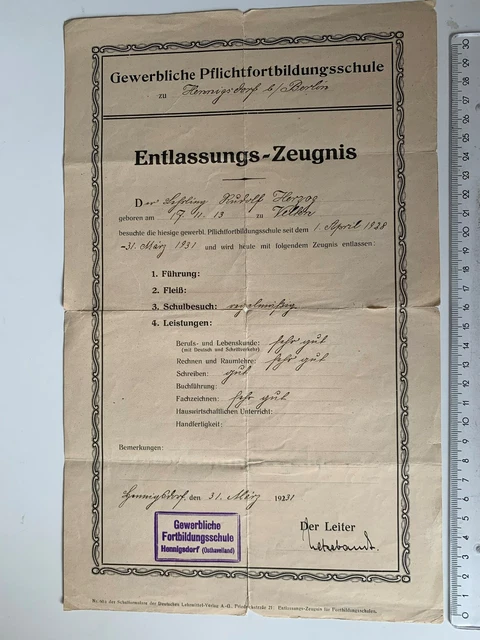 Gewerbliche Pflichtfortbildungsschule
zu Hennigsdorf b/Berlin
Entlassungs-Zeugnis
Der Lehrling Rudolf Herzog
geboren am 17. 11. 13 zu Velten
besuchte die hiesige gewerbl. Pflichtfortbildungsschule seit dem 1. April 1928
-31. März 1931 und wird heute mit folgendem Zeugnis entlassen:
1. Führung:
2. Fleiß:
3. Schulbesuch: regelmäßig
4. Leistungen:
Berufs- und Lebenskunde: sehr gut
(mit Deutsch und Schriftverkehr)
Rechnen und Raumlehre: sehr gut
Schreiben: gut
Buchführung:
Fachzeichnen: sehr gut
Hauswirtschaftlichen Unterricht:
Handfertigkeit:
Bemerkungen:
Hennigsdorf, den 31. März 1931
Gewerbliche
Fortbildungsschule
Hennigsdorf (Osthavelland)
Der Leiter
der Schulformulare des Deutschen Lehrmittel-Verlag A.-G., Friedrichstraße Entlassungs-Zeugnis für Fortbildungsschulen.
0 1 2 3 4 5 6 7 8 9 10 11 12 13 14 15 16 17 18 19 20 21 22 23 24 25 26 27 28 29 30